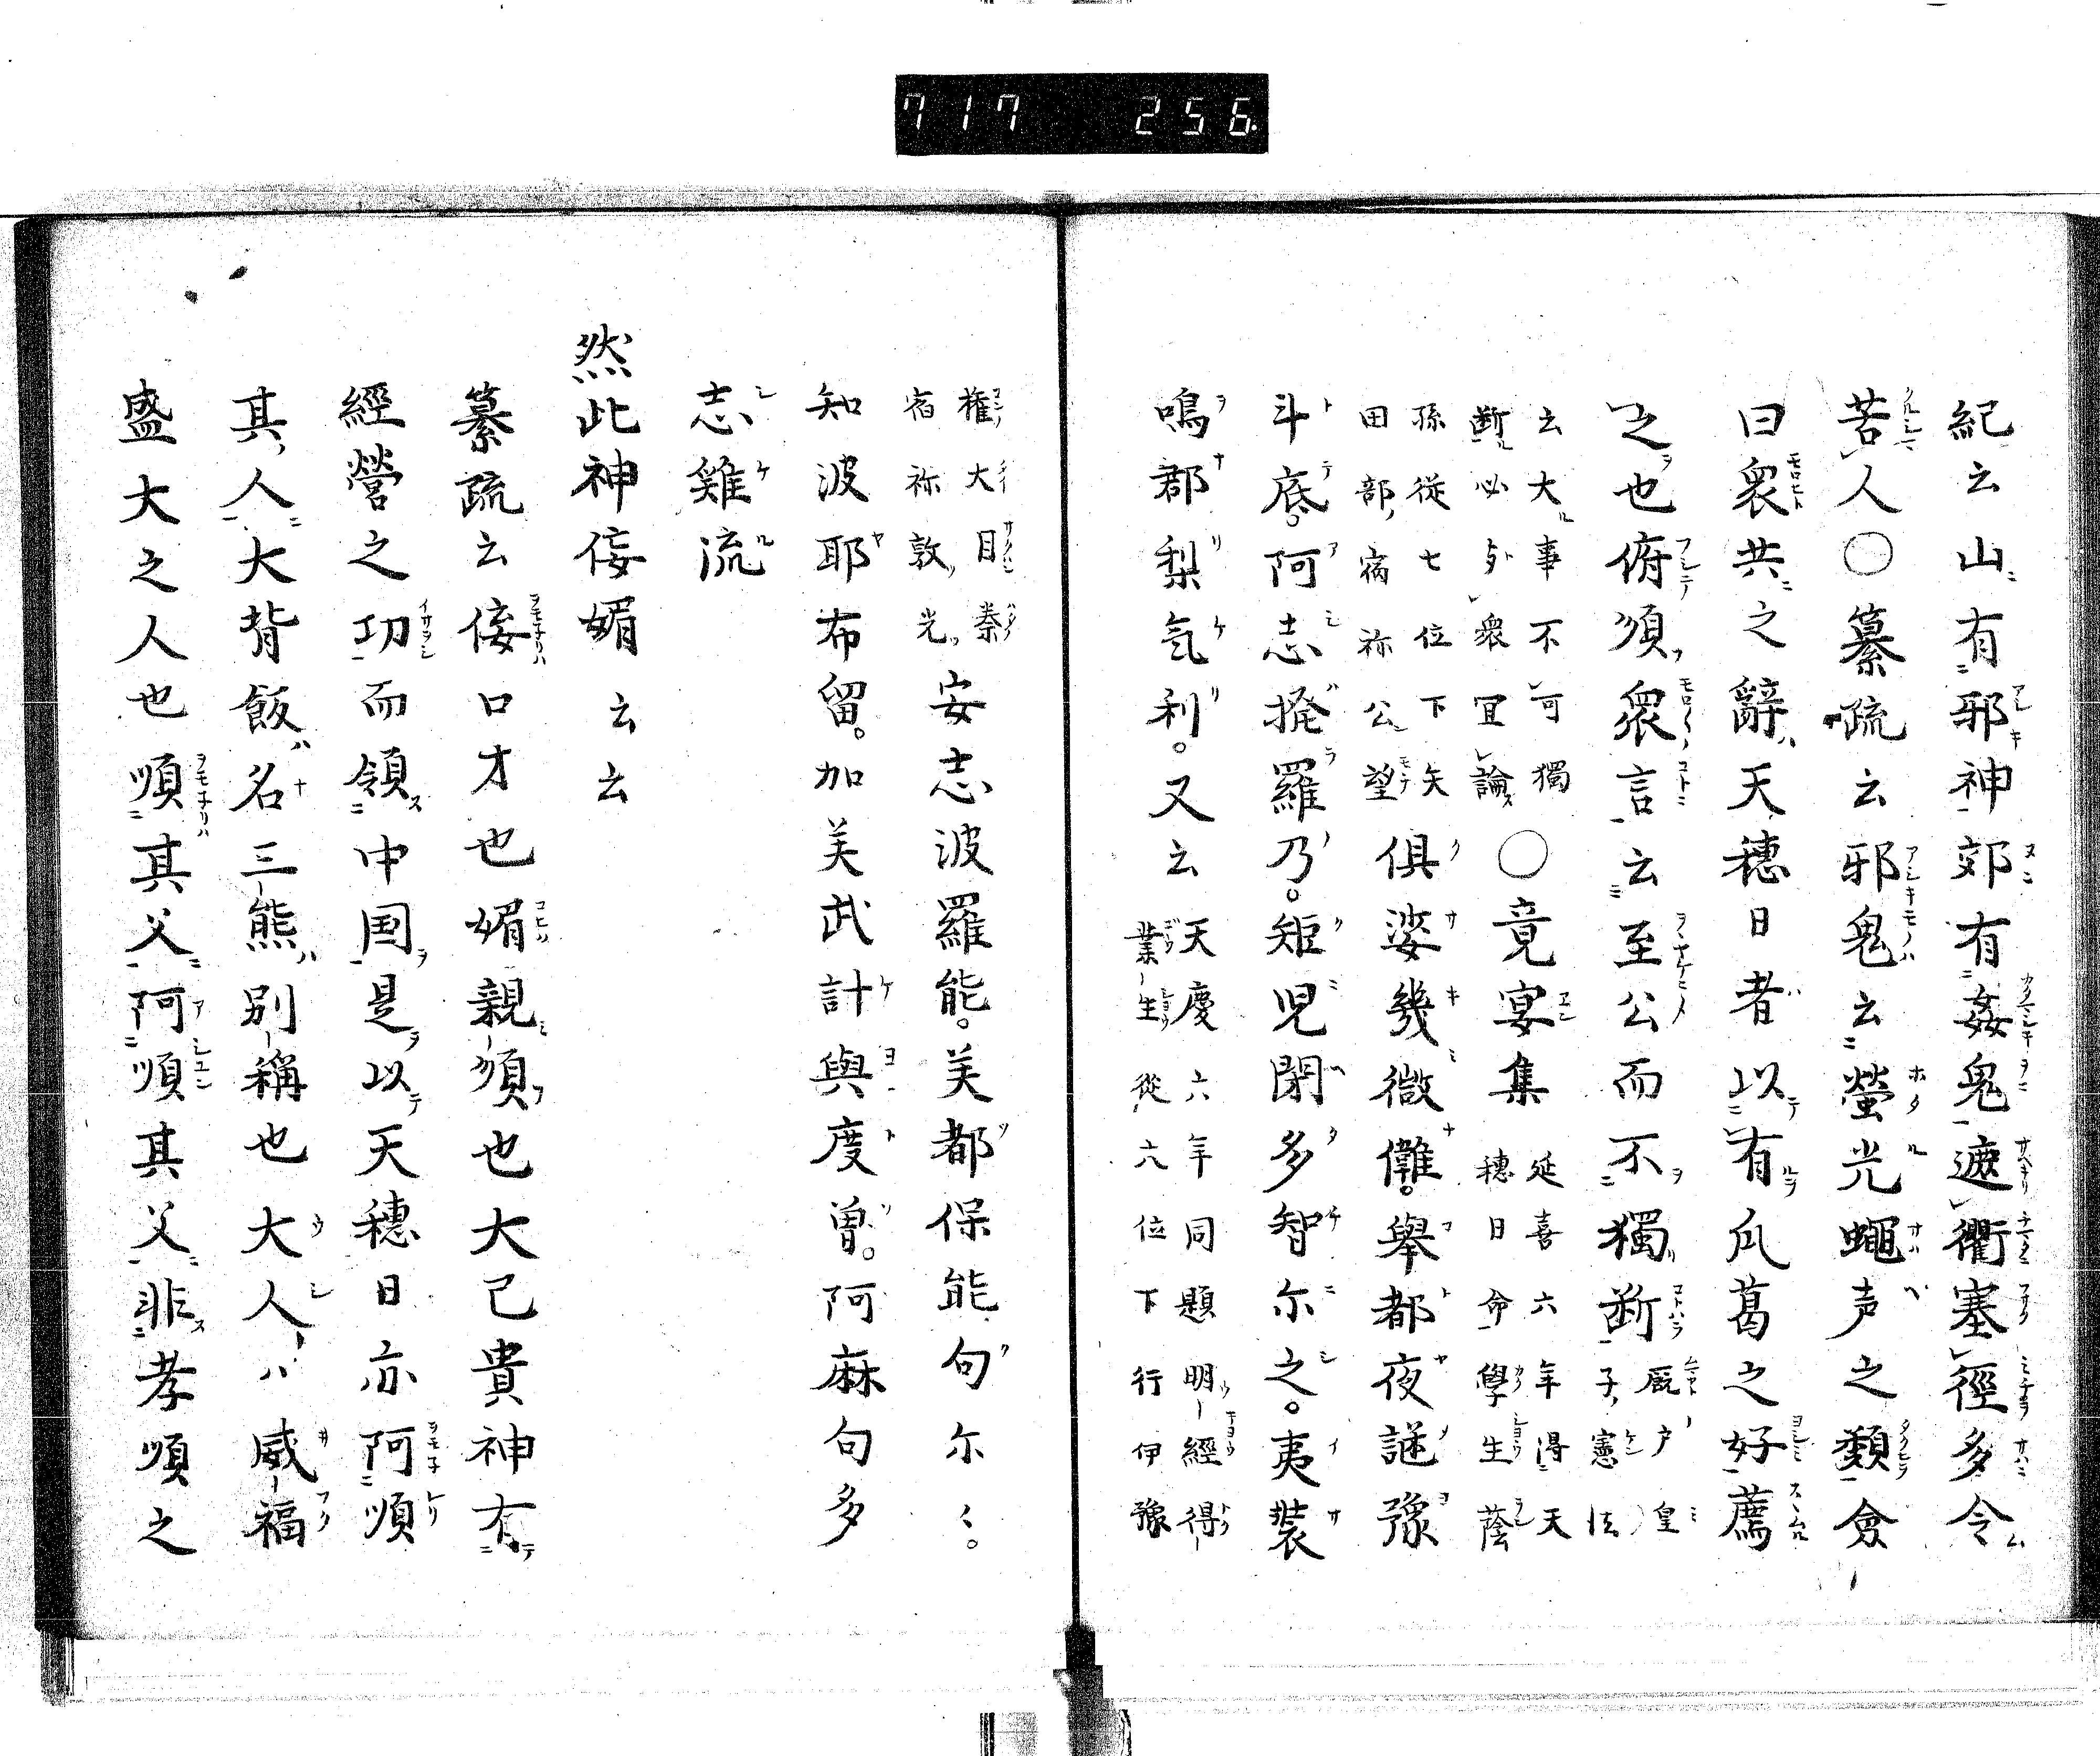 717 256
紀云山有邪神郊有姦鬼遮衢塞徑多令
苦人○纂疏云邪鬼云螢光蠅声之類僉
曰衆共之辭天穗日者以有瓜葛之好薦
之也俯順衆言云至公而不獨断厩戸皇
子憲法
云大事不可獨
断必与衆冝論○竟宴集延喜六年得天
穗日命學生蔭
孫從七位下矢
田部宿祢公望倶娑幾微儺。舉都夜謎豫
斗底。阿志揆羅乃。矩児閇多智尓之。夷裝
鳴郡梨気利。又云天慶六年同題明經得
業生從六位下行伊豫
権大目秦
宿祢敦光安志波羅能。美都保能句尓〻。
知波耶布留。加美武計與度曾。阿麻句多
志雞流
然此神侫媚云云
纂疏云侫口才也媚親順也大己貴神有
經營之功而領中国是以天穗日亦阿順
其人大背飯名三熊別稱也大人ハ威福
盛大之人也順其父阿順其父非孝順之